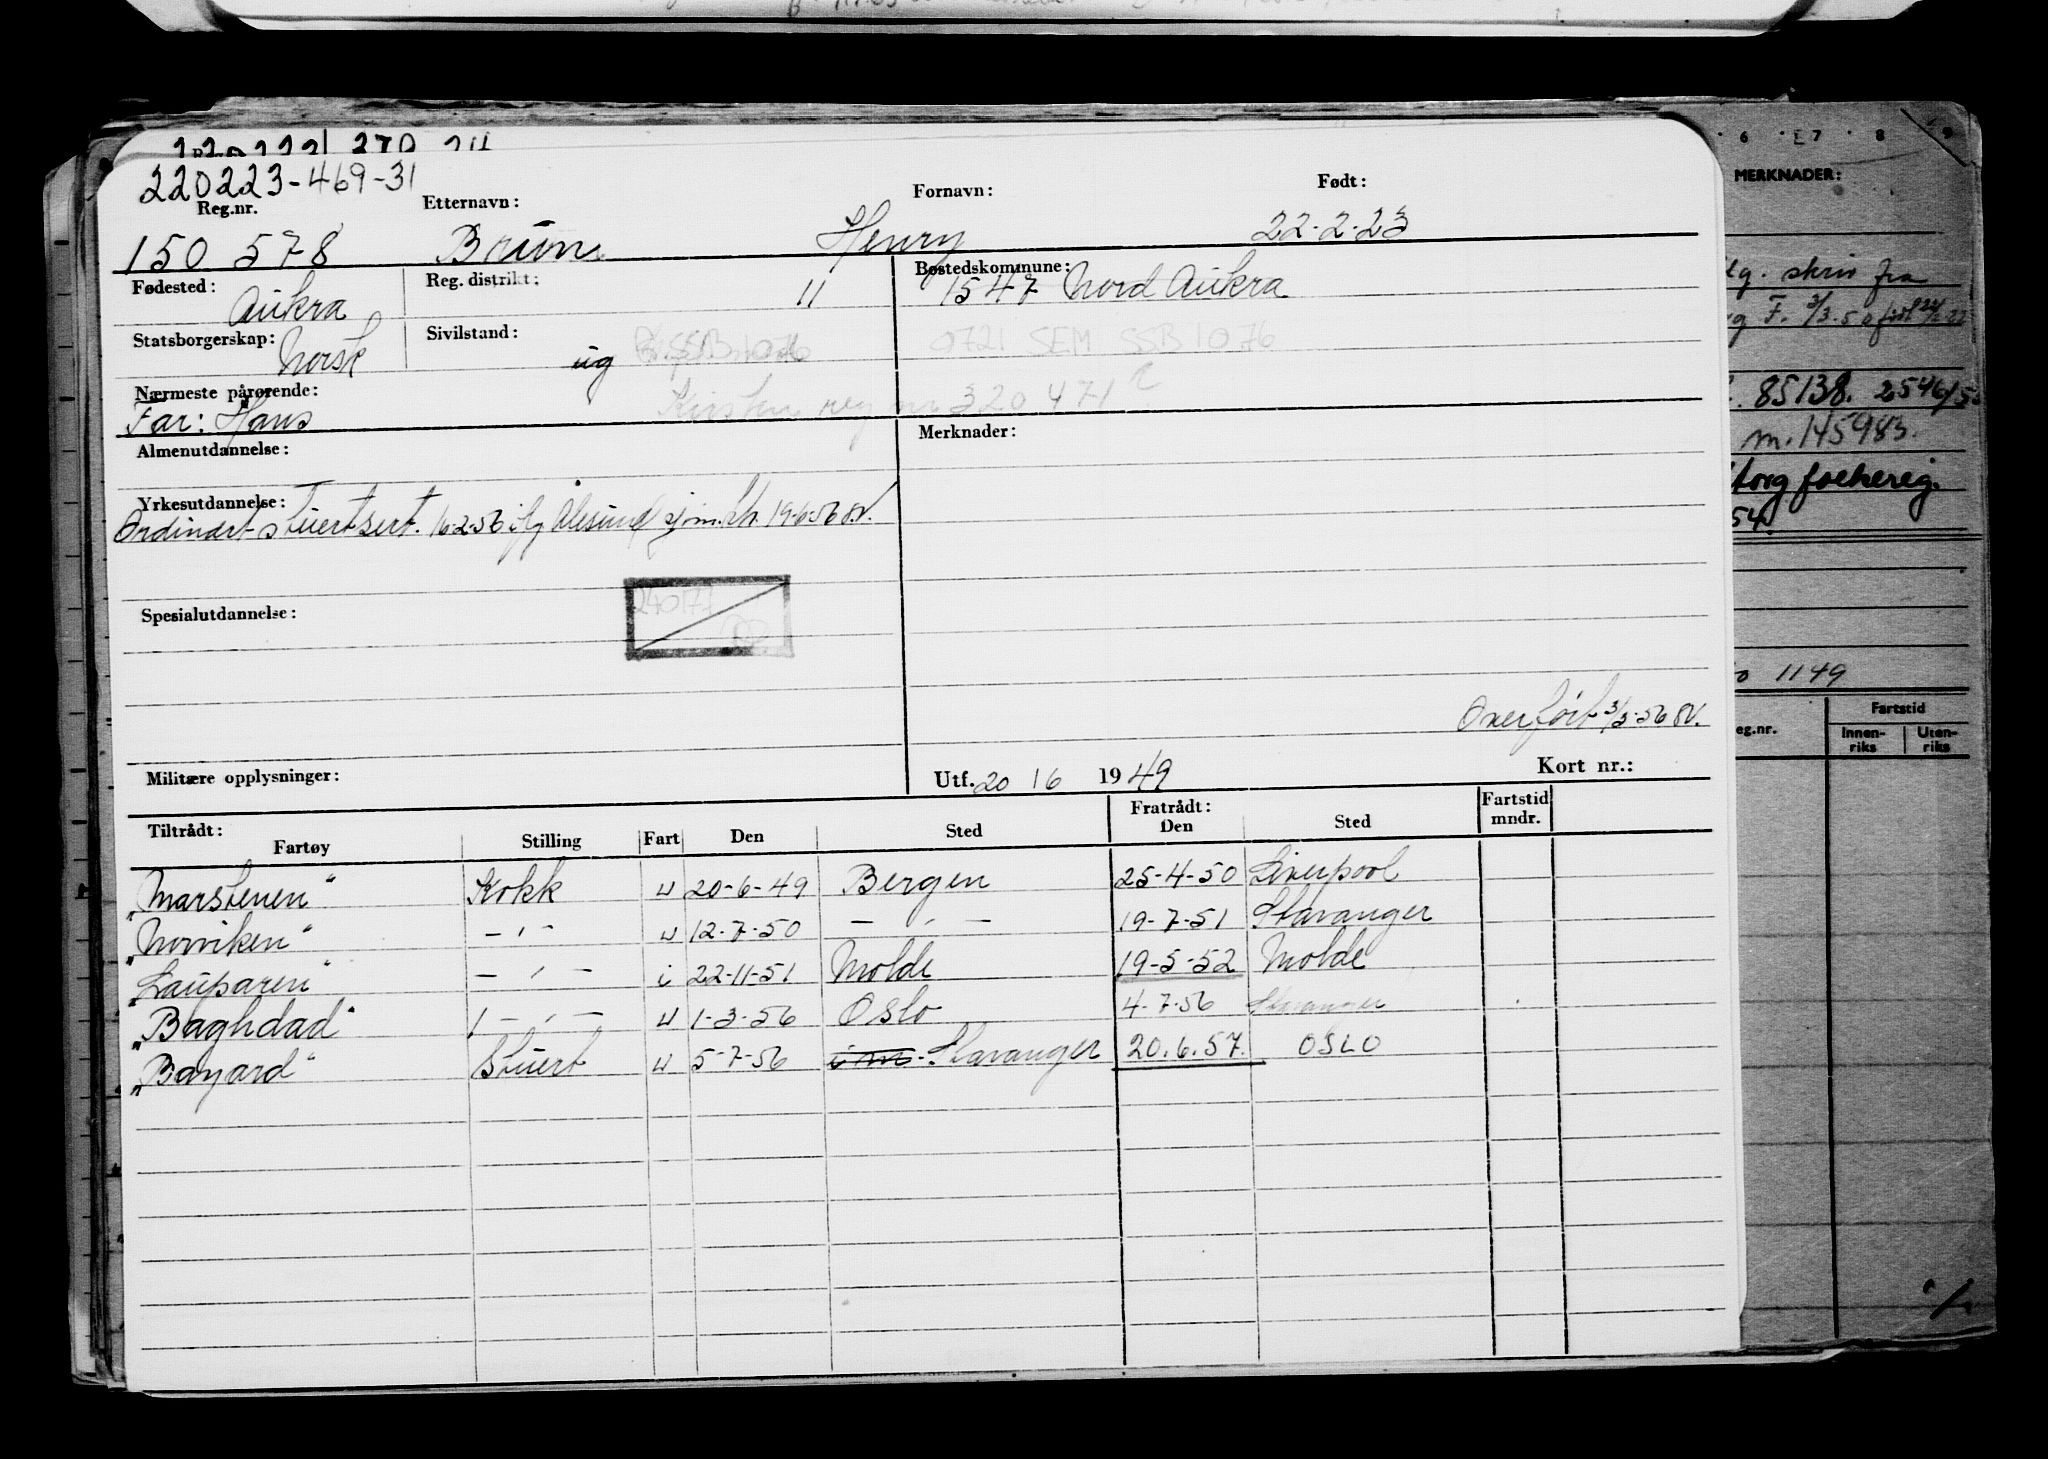 220223-469-31
Reg.nr. Etternavn: Fornavn: Født:
150 578 Brun Henry 22-2-23
Fødested: Aukra Reg. distrikt: 11 Bostedskommune: 1547 Nord Aukra
Statsborgerskap: Norsk Sivilstand: ug SSB 1076 0721 SEM SSB 1076
Nærmeste pårørende:
Far: Hans Kirsten reg nr 320471?
Almenutdannelse: Merknader:
Yrkesutdannelse:
Ordinært stuertsert. 16-2-56 Ålesund 19-6-56
Spesialutdannelse:
240177
Overført 3/3-56
Militære opplysninger: Utf. 20 / 6 1949 Kort nr.:
Tiltrådt: Fratrådt: Fartstid mndr.
Fartøy Stilling Fart Den Sted Den Sted
"Marstenen" Kokk u 20-6-49 Bergen 25-4-50 Liverpool
"Norviken" -"- u 12-7-50 -"- 19-7-51 Stavanger
"Lauparen" -"- i 22-11-51 Molde 19-5-52 Molde
"Baghdad" -"- u 1-3-56 Oslo 4-7-56 Stavanger
"Bayard" Stuert u 5-7-56 Stavanger 20.6.57. OSLO
6 7 8 9
MERKNADER:
skriv fra
F. 3/3-50
85138. 2546/5
m. 145983.
54
1149
eg.nr. Fartstid
Innen-riks Uten-riks